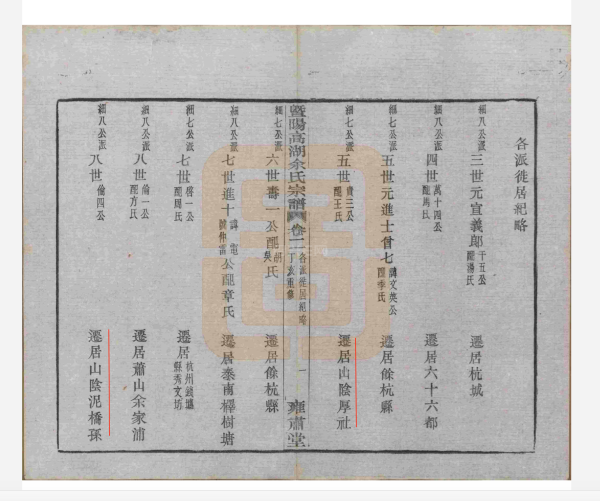 各派徙居紀略
細八公派
三世元宣義郎 千五公 配湯氏
遷居杭城
細八公派
四世 萬十四公 配馬氏
遷居六十六都
細七公派
五世元進士 諱文英公 配季氏
遷居餘杭縣
細七公派
五世 貴三公 配王氏
遷居山陰厚社
暨陽高湖余氏宗譜
卷二
各派徙居紀略
丁亥重修
一
雍肅堂
細七公派
六世壽一公配 胡 吳 氏
遷居餘杭縣
細八公派
七世進十 公配章氏
遷居泰南櫸樹塘
細七公派
七世 啓一公 配周氏
遷居 杭州錢塘 縣秀文坊
細八公派
八世 倫一公 配方氏
遷居蕭山余家浦
細八公派
八世 倫四公
遷居山陰泥橋孫